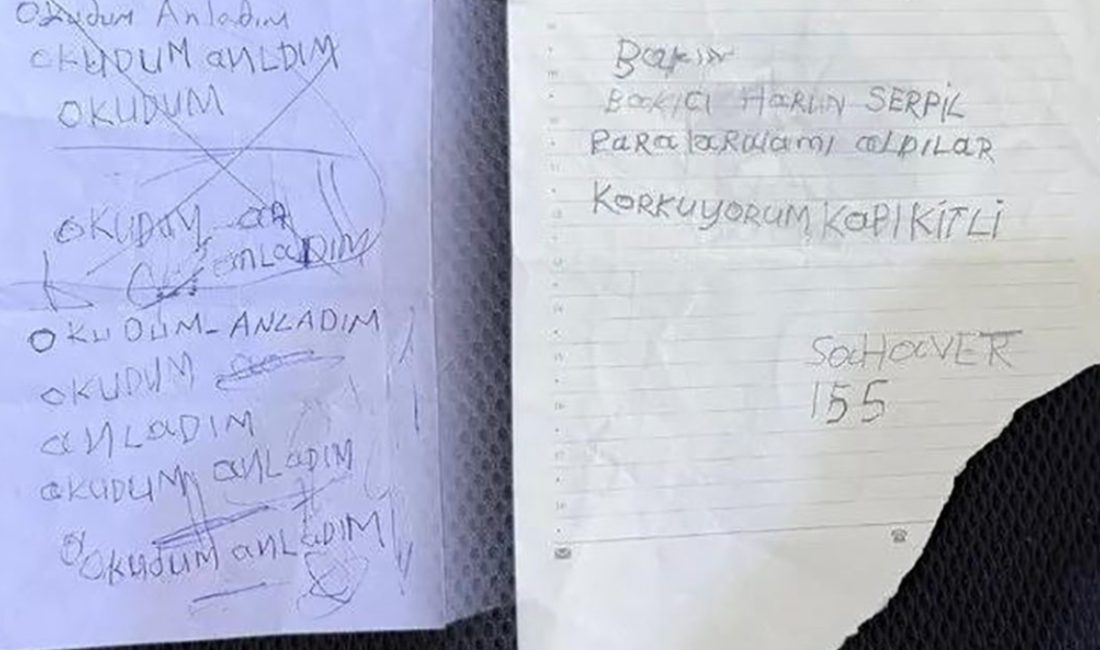 Okudum Anladım
OKUDUM ANLDIM
OKUDUM
OKUDUM
ANLADIM
OKUDUM-ANLADIM
OKUDUM
aNLaDIM
OKUDUM aNLaDIM
OKUDUM aNLaDIM
Bakın
BakICI HARUN SERPİL
PaRalaRımı alDILaR
KORKUYORUM KaPI KİTLİ
155